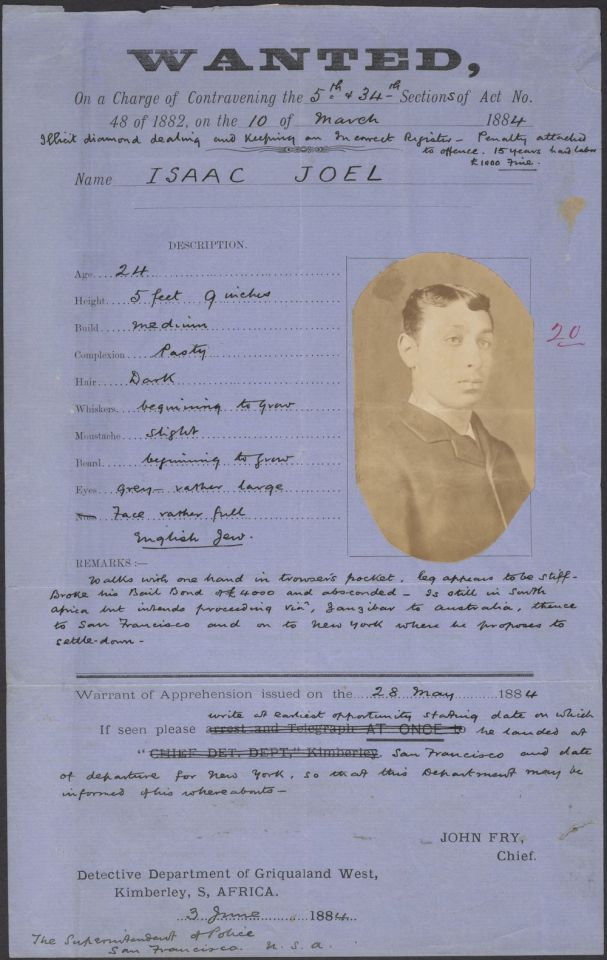 WANTED,
On a Charge of Contravening the 5th & 34th Sections of Act No.
48 of 1882, on the 10 of March 1884
Illicit diamond dealing and Keeping an Incorrect Register – Penalty attached
to offence. 15 years hard labor
£1000 Fine.
Name ISAAC JOEL
DESCRIPTION.
Age 24
Height 5 feet 9 inches
Build medium
Complexion Pasty
Hair Dark
Whiskers beginning to grow
Moustache slight
Beard beginning to grow
Eyes Grey – rather large
Face rather full
English Jew.
20
REMARKS :—
Walks with one hand in trowsers pocket, leg appears to be stiff –
Broke his Bail Bond of £4000 and absconded – Is still in South
Africa but intends proceeding via, Zanzibar to Australia, thence
to San Francisco and on to New York where he proposes to
settle-down –
Warrant of Apprehension issued on the 28 May 1884
write at earliest opportunity stating date on which
If seen please arrest and Telegraph AT ONCE to he landed at
"CHIEF DET. DEPT," Kimberley. San Francisco and date
of departure for New York, so that this Department may be
informed of his whereabouts –
JOHN FRY,
Chief.
Detective Department of Griqualand West,
Kimberley, S, AFRICA.
3 June 1884.
The Superintendent of Police
San Francisco. U.S.A.